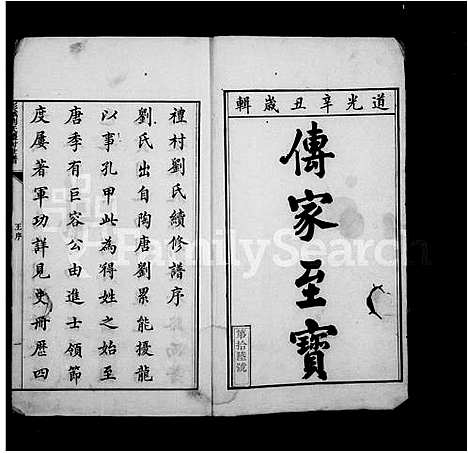 道光辛丑歲輯
傳家至寶
第拾陸號
禮村劉氏續修譜序
劉氏出自陶唐劉累能擾龍
以事孔甲此為得姓之始至
唐季有巨容公由進士領節
度屢著軍功詳見史冊歷四
王序
FamilySearch